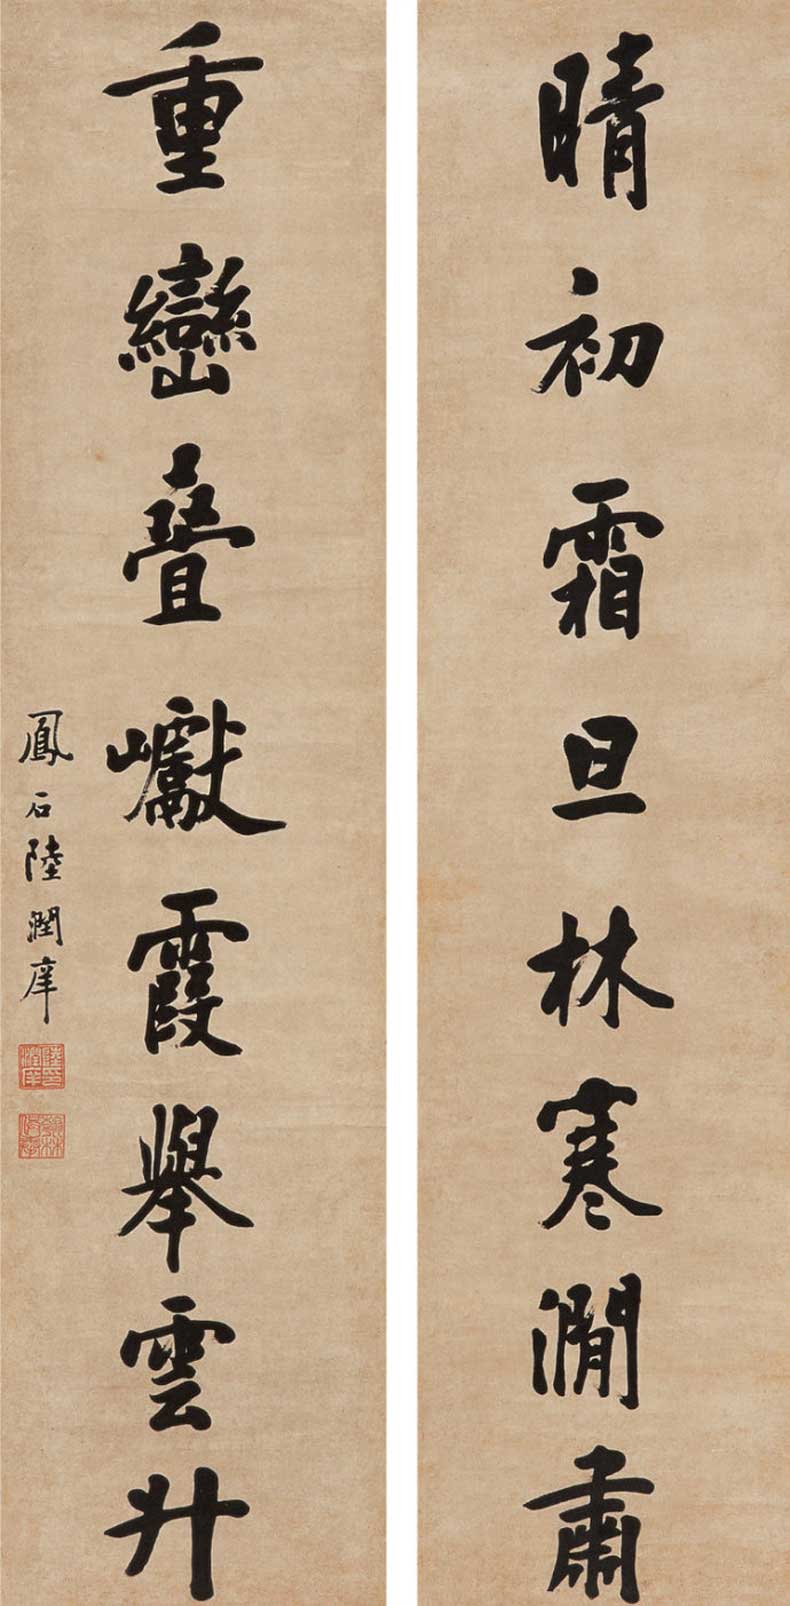 晴初霜旦林寒澗肅
重巒叠巘霞舉雲升
鳳石陸潤庠